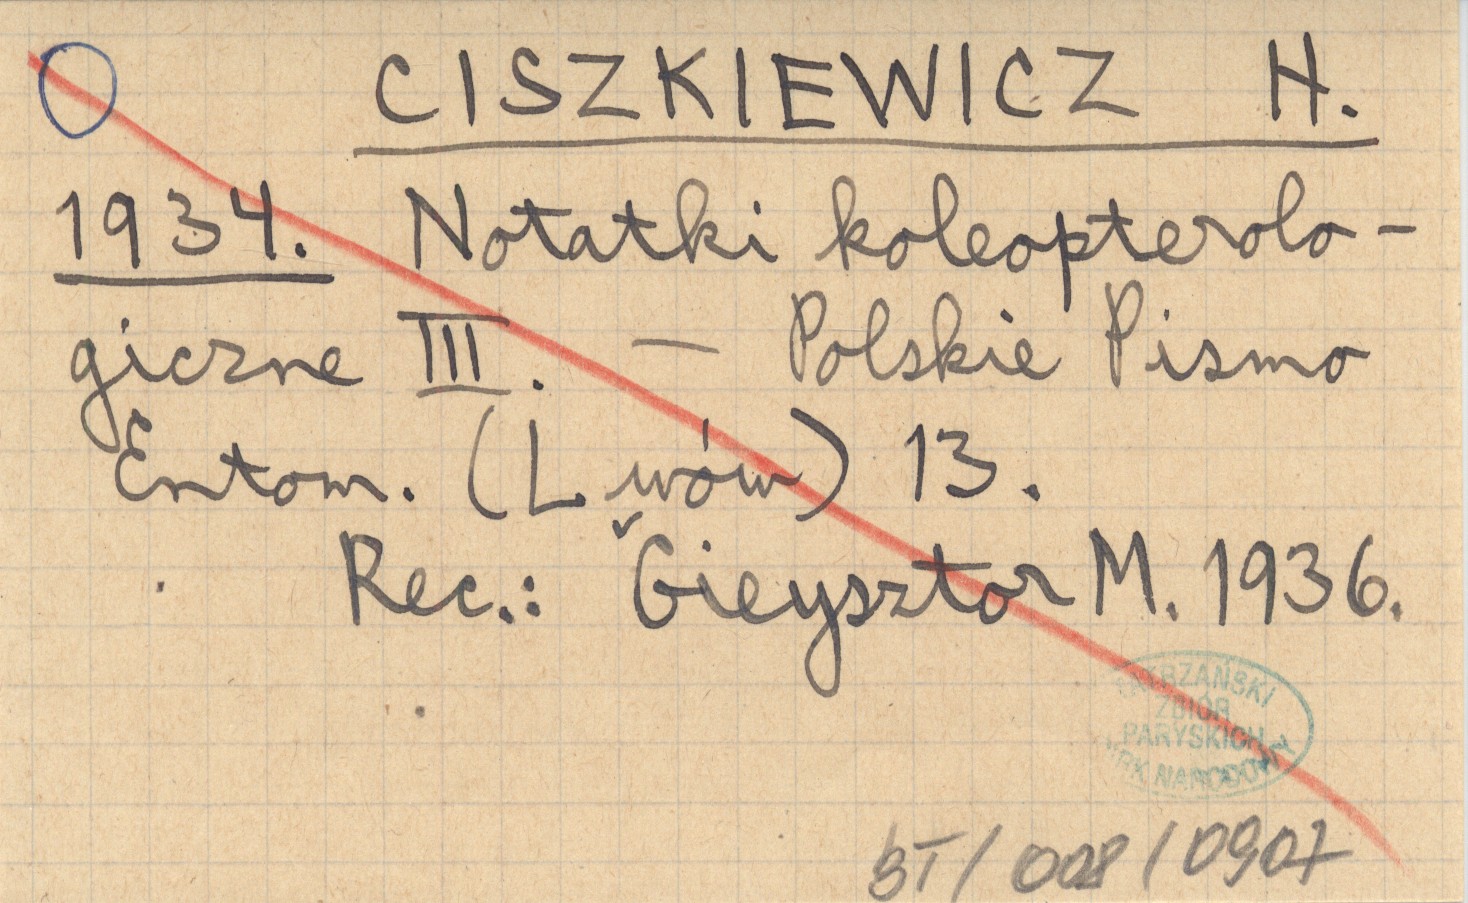 CISZKIEWICZ H.
1934. Notatki koleoptrolo-
giczne III. — Polskie Pismo
Entom. (Lwów) 13.
Rec.: Gieysztor M. 1936.
ZBIÓR
PARYSKICH
BT/008/0907